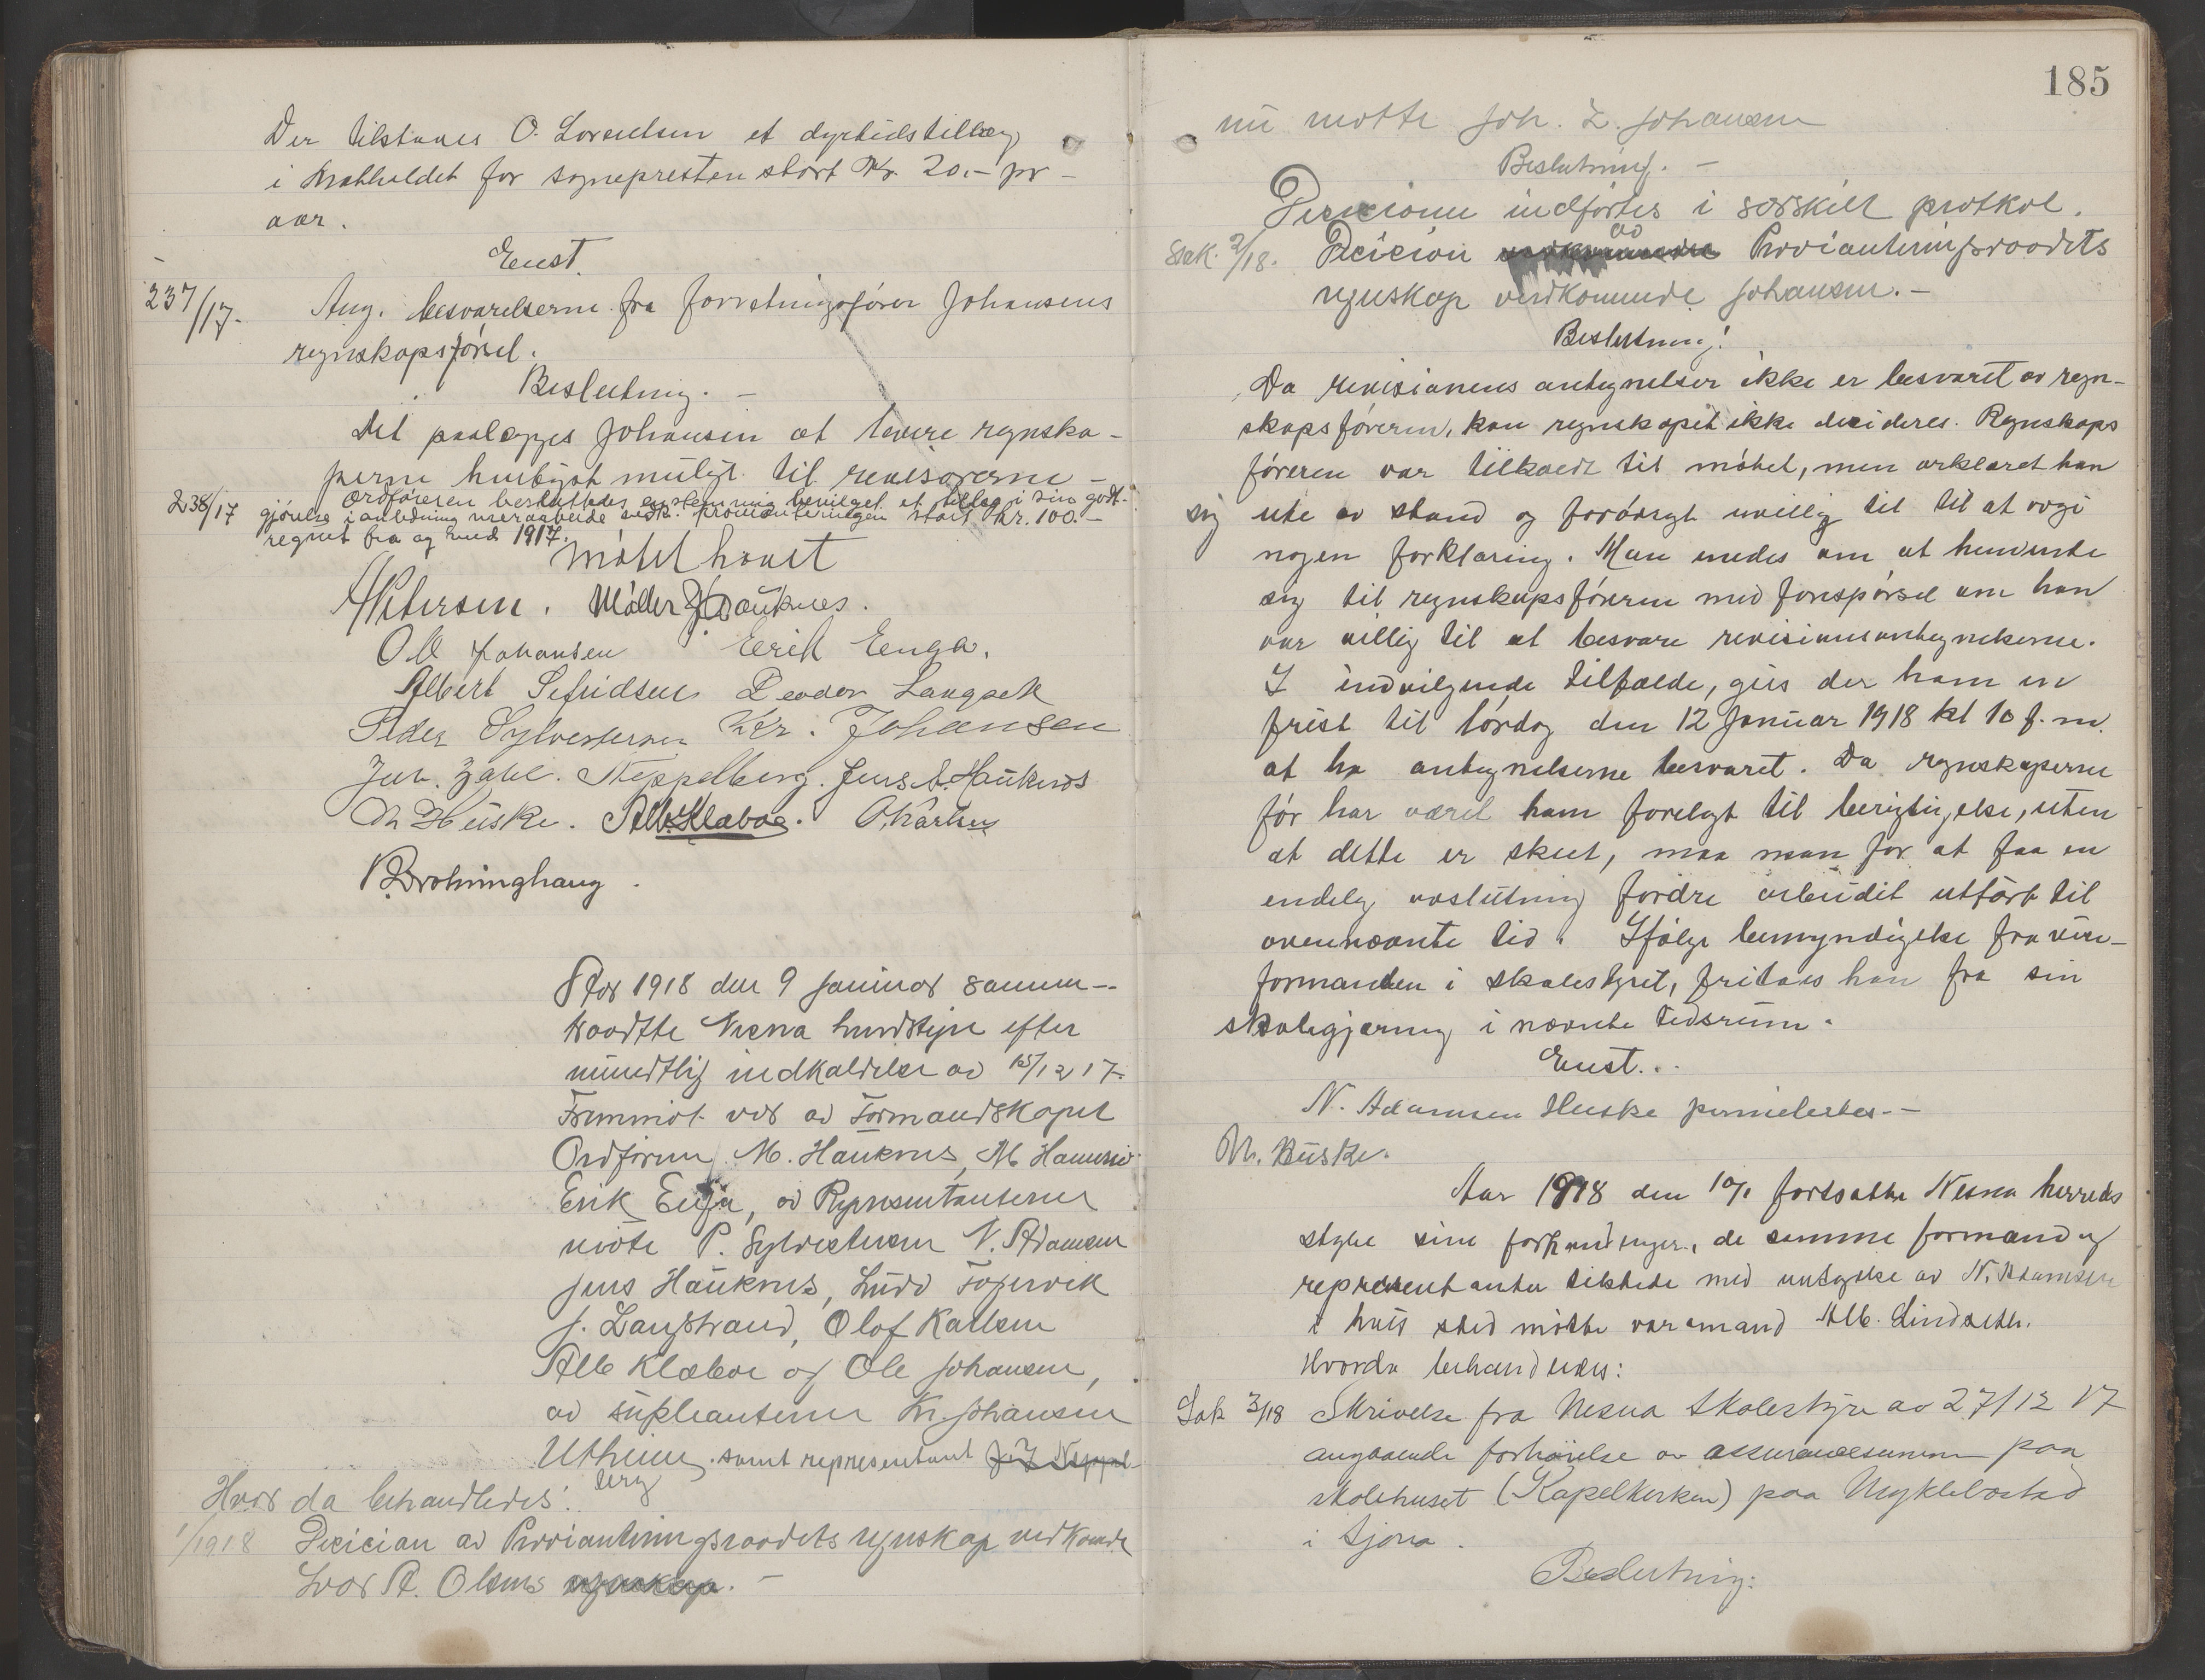 Der tilstaaes O. Lorentsen et dyrtidstillæg
i kosthaldet for sognepresten stort Kr. 20.- pr
aar.
Enst.
237/17. Ang. besvarelserne fra forretningsfører Johansens
regnskapsførsel.
Beslutning. -
Det paalægges Johansen at levere regnska-
perne hurtigst muligt til revisorerne -
238/17 Ordføreren besluttedes enstemmig bevilget et tillæg i sin godt-
gjørelse i anledning meraarbeide vedk. provianteringen stort kr. 100.-
regnet fra og med 1917.
Møtet hævet
A Petersen. Møller Hauknes.
O M Johansen Erik Enga.
Albert Sefridsen Peder Langsek
Peder Sylvestersen Kr. Johansen
Joh. Zahl. Neppelberg. Jens A. Hauknes
M Huske. Alb Klæboe. O. Karlsen
B. Dronninghaug.
Aar 1918 den 9 januar samm--
traadtte Nesna herredstyre efter
mundtlig indkaldelse av 15/12 17.
Fremmøt var av Formandskapet
Ordføreren M. Hauknes, M Hamnes
Erik Enga, av Representanterne
møte P. Sylvestersen N. Adamsen
Jens Hauknes, Ludv Fagervik
J. Langstrand, Olof Karlsen
Alb Klæboe og Ole Johansen,
av supleanterne Kr. Johansen
Utheim, samt representant J. Z Neppel-
berg
Hvor da behandledes:
1/1918 Decician av Provianteringsraadets regnskap vedkomde
Lars A. Olsens regnskap. -
185
nu møtte Joh. Z. Johansen
Beslutning. -
Decicionen indførtes i særskilt protkol.
Sak. 2/18. Decicion av Provianteringsraadets
regnskap vedkommende Johansen. -
Beslutning!
Da revisionens antegnelser ikke er besvaret av regn-
skapsføreren, kan regnskapet ikke decideres. Regnskaps
føreren var tilkaldt til møtet, men erklæret han
sig ute av stand og forøvrigt uvillig til til at avgi
nogen forklaring. Man enedes om at henvende
sig til regnskapsføreren med forespørsel om han
var villig til at besvare revisionsantegnelserne.
I indvilgende tilfælde, gies der ham en
frist til lørdag den 12 Januar 1918 kl 10 f.m.
at ha antegnelserne besvaret. Da regnskaperne
før har været ham forelagt til berigtigelse, uten
at dette er skeet, maa man for at faa en
endelig avslutning fordre arbeidet utført til
ovennævnte tid. Ifølge bemyndigelse fra vise-
formanden i skolestyret, fritaes han fra sin
skolegjærning i nævnte tidsrum.
Enst..
N. Adamsen Huske permitertes.-
M. Huske.
Aar 1918 den 10/1 fortsatte Nesna herreds
styre sine forhandlinger, de samme formænd og
representanter tilstede med undtagelse av N. Adamsen
i hvis sted møtte varamand Alb. Lindseth.
Hvorda behandledes:
Sak 3/18 Skrivelse fra Nesna Skolestyre av 27/12 17
angaaende forhøielse av assurancesummen paa
skolehuset (Kapelkirken) paa Myklebostad
i Sjona.
Beslutning: